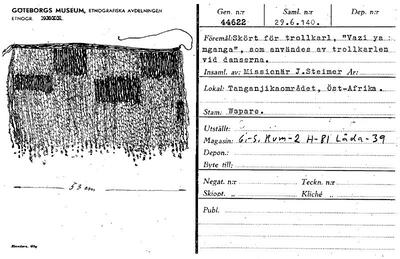 GÖTEBORGS MUSEUM, ETNOGRAFISKA AVDELNINGEN
ETNOGR.
53 cm
Gen. n:r
Saml. n:r
Dep. n:r
44622
29.6.140.
Föremål:Skört för trollkarl, "Vazi ya
mganga", som användes av trollkarlen
vid danserna.
Insaml. av: Missionär J.Steimer År:
Lokal: Tanganjikaområdet, Öst-Afrika.
Stam: Wapare.
Utställt:
Magasin: G.-S. Rum-2 H-81 Låda-39
Depon.:
Byte till:
Negat. n:r
Teckn. n:r
Skiopt. „
Kliché „
Publ.